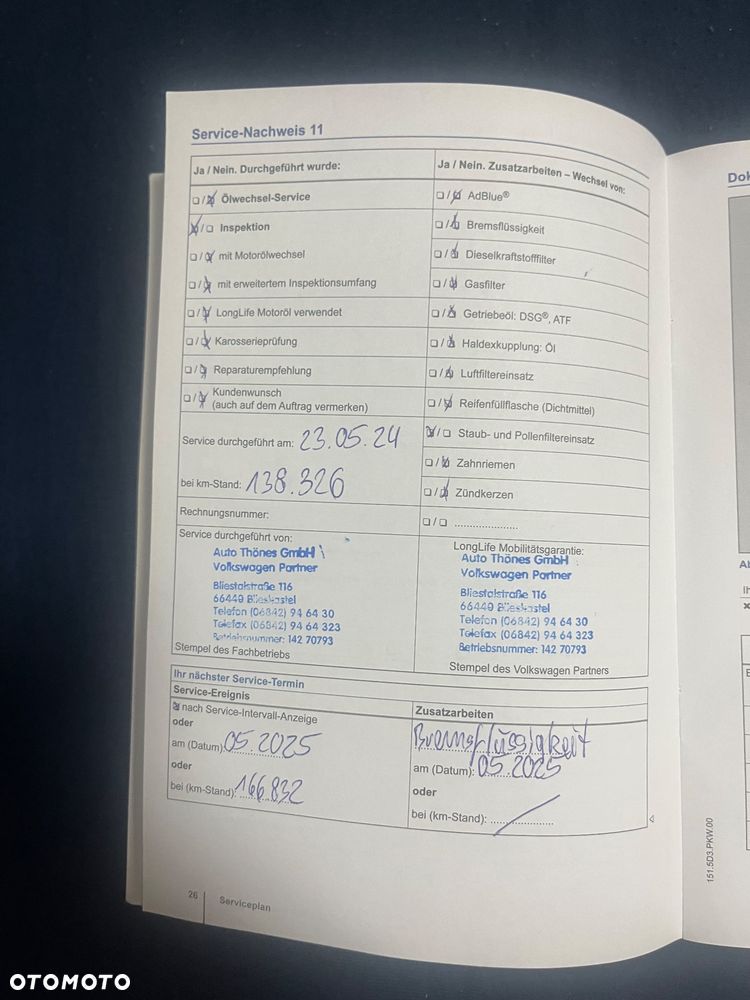 Service-Nachweis 11
Ja / Nein. Durchgeführt wurde:
Ja / Nein. Zusatzarbeiten – Wechsel von:
❏ / ❏ Ölwechsel-Service
❏ / ❏ AdBlue®
❏ / ❏ Inspektion
❏ / ❏ Bremsflüssigkeit
❏ / ❏ mit Motorölwechsel
❏ / ❏ Dieselkraftstofffilter
❏ / ❏ mit erweitertem Inspektionsumfang
❏ / ❏ Gasfilter
❏ / ❏ LongLife Motoröl verwendet
❏ / ❏ Getriebeöl: DSG®, ATF
❏ / ❏ Karosserieprüfung
❏ / ❏ Haldexkupplung: Öl
❏ / ❏ Reparaturempfehlung
❏ / ❏ Luftfiltereinsatz
❏ / ❏ Kundenwunsch
(auch auf dem Auftrag vermerken)
❏ / ❏ Reifenfüllflasche (Dichtmittel)
Service durchgeführt am: 23.05.24
❏ / ❏ Staub- und Pollenfiltereinsatz
❏ / ❏ Zahnriemen
bei km-Stand: 138.326
❏ / ❏ Zündkerzen
Rechnungsnummer:
❏ / ❏ ......................
Service durchgeführt von:
Auto Thönes GmbH
Volkswagen Partner
Bliestalstraße 116
66440 Blieskastel
Telefon (06842) 94 64 30
Telefax (06842) 94 64 323
Betriebsnummer: 142 70793
Stempel des Fachbetriebs
LongLife Mobilitätsgarantie:
Auto Thönes GmbH
Volkswagen Partner
Bliestalstraße 116
66440 Blieskastel
Telefon (06842) 94 64 30
Telefax (06842) 94 64 323
Betriebsnummer: 142 70793
Stempel des Volkswagen Partners
Ihr nächster Service-Termin
Service-Ereignis
❏ nach Service-Intervall-Anzeige
oder
am (Datum): 05.2025
oder
bei (km-Stand): 166.832
Zusatzarbeiten
Bremsflüssigkeit
am (Datum): 05.2025
oder
bei (km-Stand): ......................
26
Serviceplan
151.5D3.PKW.00
Dok
Ab
Ih
OTOMOTO